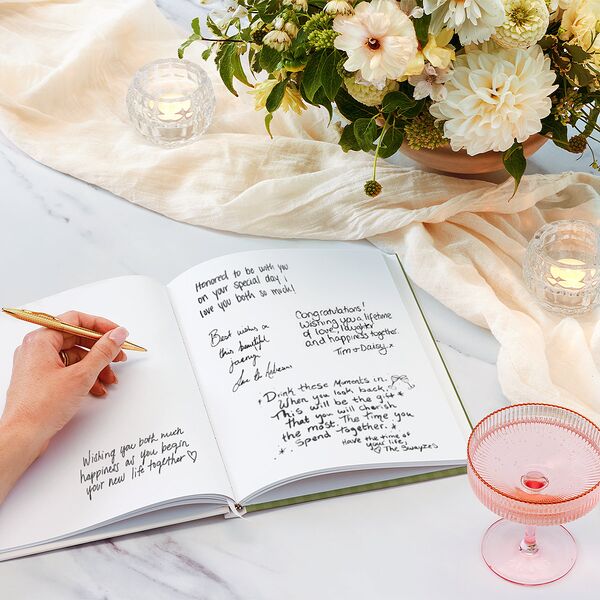 Wishing you both much
happiness as you begin
your new life together ♡
Honored to be with you
on your special day!
love you both so much!
Best wishes on
this beautiful
Congratulations!
Wishing you a lifetime
of love, laughter
and happiness together.
Tim & Daisy x
Drink these moments in.
When you look back,
This will be the gift
that you will cherish
the most. The time you
Spend together.
Have the time of
your life,
♡ The Swayzes